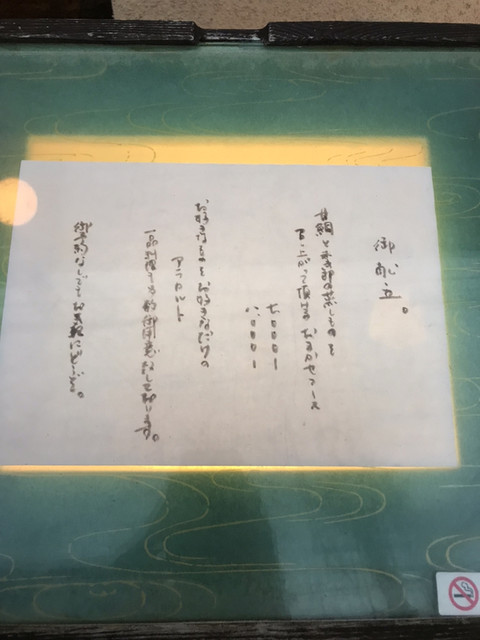 御献立。
甘鯛と季節の蒸しものを
召し上がって頂きます おまかせコース
お好きなものをお好きなだけの
アラカルト
一品料理も多数御用意致しております。
御予約なしでもお気軽にどうぞ。